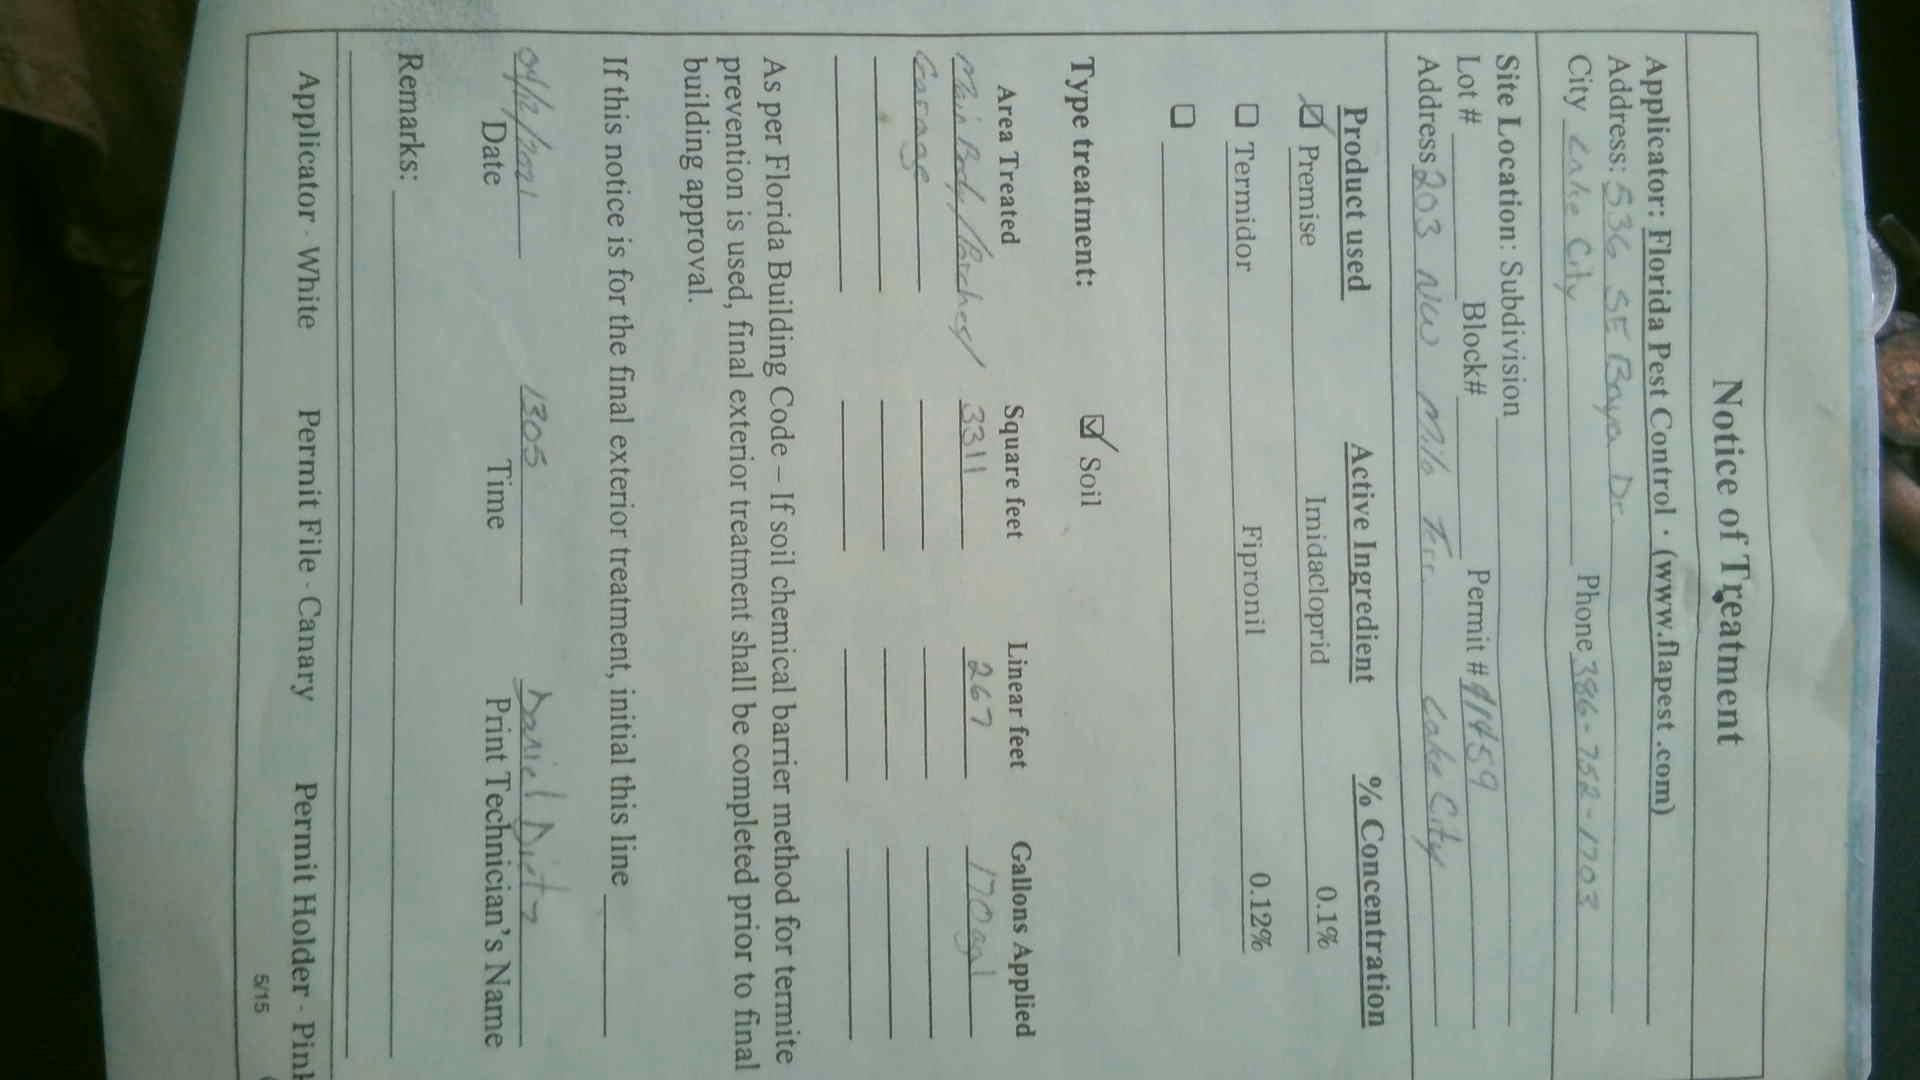 Notice of Treatment
Applicator: Florida Pest Control · (www.flapest.com)
Address: 536 SE Baya Dr.
City Lake City Phone 386-752-1703
Site Location: Subdivision
Lot # Block# Permit # 41459
Address 203 NW Milo Terr. Lake City
Product used Active Ingredient % Concentration
Premise Imidacloprid 0.1%
Termidor Fipronil 0.12%
Type treatment: Soil
Area Treated Square feet Linear feet Gallons Applied
Main Body/Porches/ 3311 267 170 gal
Garage
As per Florida Building Code – If soil chemical barrier method for termite
prevention is used, final exterior treatment shall be completed prior to final
building approval.
If this notice is for the final exterior treatment, initial this line
04/12/2021 1305 Daniel
Date Time Print Technician's Name
Remarks:
Applicator - White Permit File - Canary Permit Holder - Pink
5/15